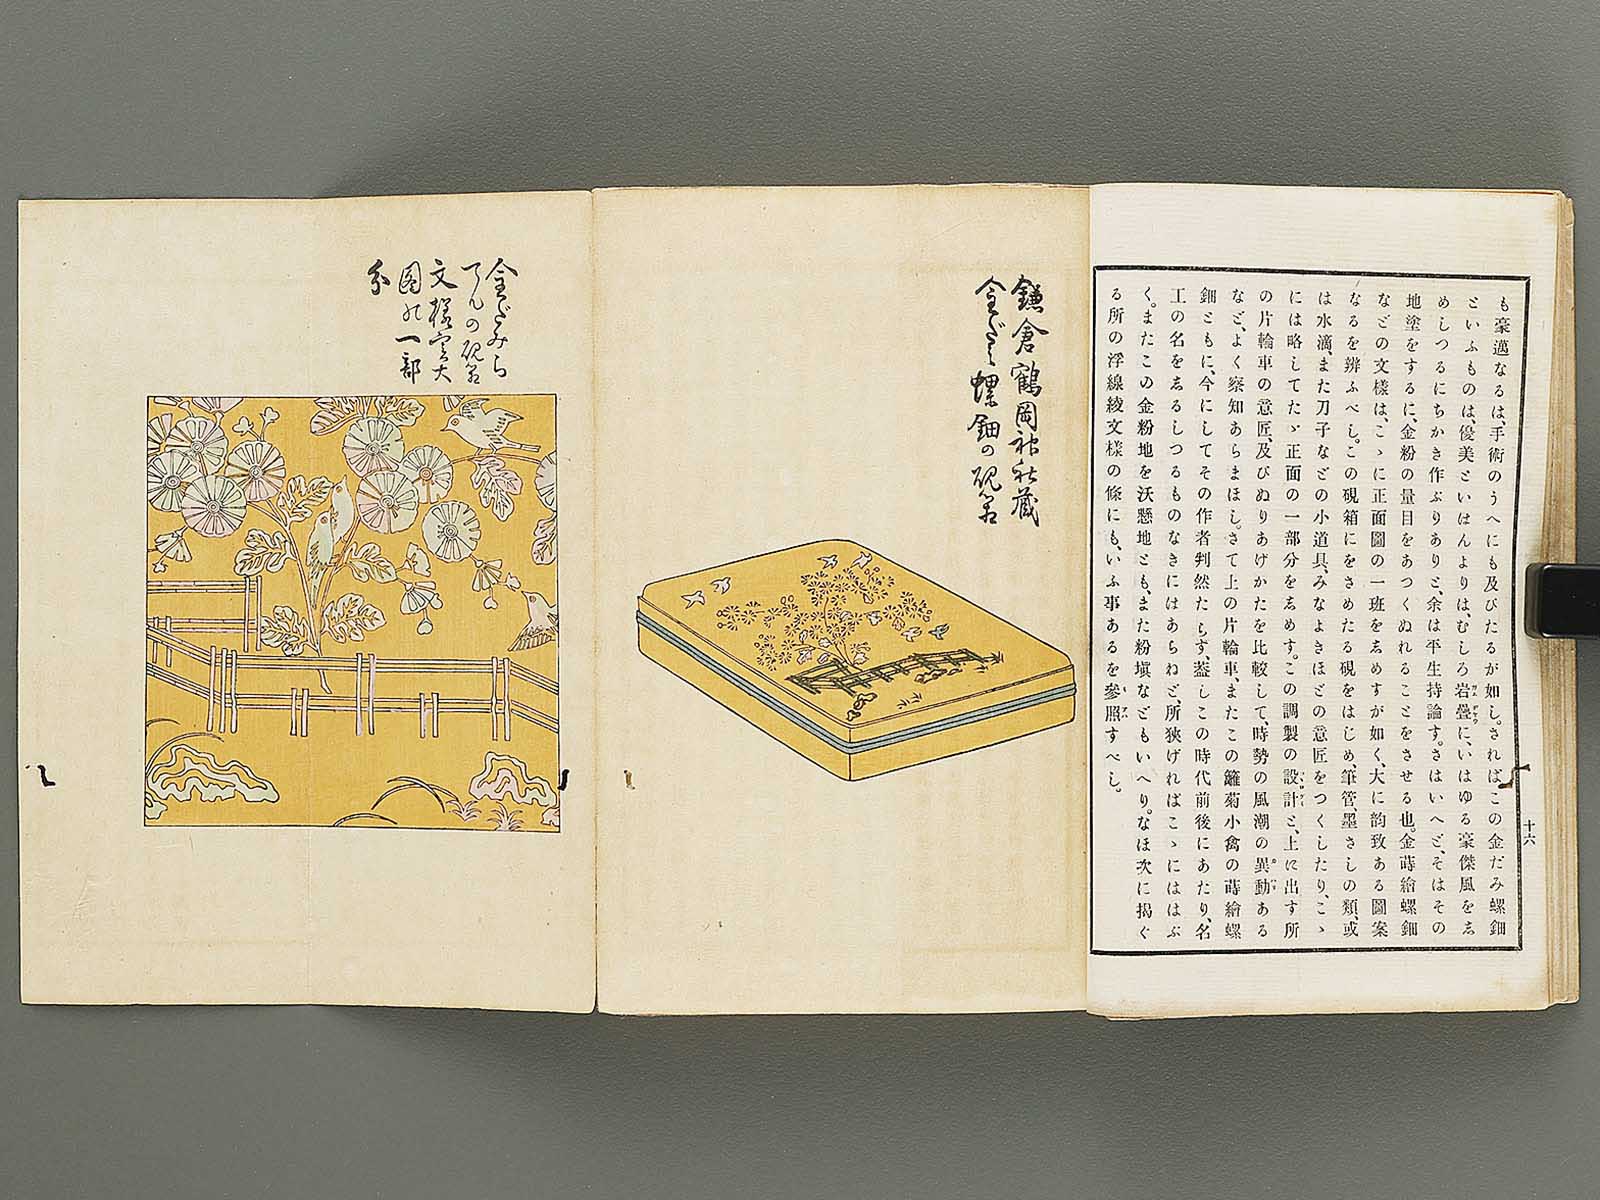 も豪邁なるは、手術のうへにも及びたるが如し。されば、この金だみ螺鈿
といふものは、優美といはんよりは、むしろ岩疊に、いはゆる豪傑風をゑ
めしつるにちかき作ぶりありと、余は平生持論す。さはいへど、そはその
地塗をするに、金粉の量目をあつくぬれることをさせる也。金蒔繪螺鈿
などの文樣は、こゝに正面圖の一班をゑめすが如く、大に韵致ある圖案
なるを辨ふべし。この硯箱にをさめたる硯をはじめ、筆管墨さしの類、或
は水滴、また刀子などの小道具、みなよきほどの意匠をつくしたり、こゝ
には略してたゞ正面の一部分をゑめす。この調製の設計と、上に出す所
の片輪車の意匠、及びぬりあげかたを比較して、時勢の風潮の異動ある
など、よく察知あらまほし。さて上の片輪車、またこの籬菊小禽の蒔繪螺
鈿ともに、今にしてその作者判然たらず、蓋しこの時代前後にあたり、名
工の名をゑるしつるものなきにはあらねど、所狹げればこゝにははぶ
く。またこの金粉地を沃懸地とも、また粉塡などもいへり。なほ次に揭ぐ
る所の浮線綾文樣の條にも、いふ事あるを參照すべし。
十六
鎌倉鶴岡神社蔵
金だみ螺鈿の硯箱
金だみら
でんの硯箱
文様実大
圖の一部
分